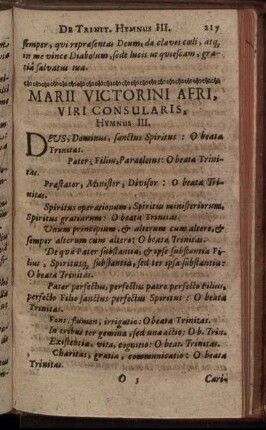 DE TRINIT. HYMNUS III. 217
semper, qui repræsentas Deum, da claves cœli, atq;
in me vince Diabolum, sede lucis ut quiescam, gra-
tiâ salvatus tua.
MARII VICTORINI AFRI,
VIRI CONSULARIS,
HYMNUS III.
DEUS, Dominus, sanctus Spiritus: O beata
Trinitas.
Pater, Filius, Paracletus: O beata Trini-
tas.
Præstator, Minister, Divisor: O beata Tri-
nitas.
Spiritus operationum, Spiritus ministeriorum,
Spiritus gratiarum: O beata Trinitas.
Unum principium, & alterum cum altero, &
semper alterum cum altero: O beata Trinitas.
De quâ Pater substantia, & ipse substantia Fi-
lius, Spiritusq; substantia, sed ter ipsa substantia:
O beata Trinitas.
Pater perfectus, perfectus patre perfecto Filius,
perfecto Filio sanctus perfectus Spiritus: O beata
Trinitas.
Fons, flumen, irrigatio: O beata Trinitas.
In tribus ter gemina, sed una actio: O b. Trin.
Existentia, vita, cognitio: O beata Trinitas.
Charitas, gratia, communicatio: O beata
Trinitas.
O 5 Cari-